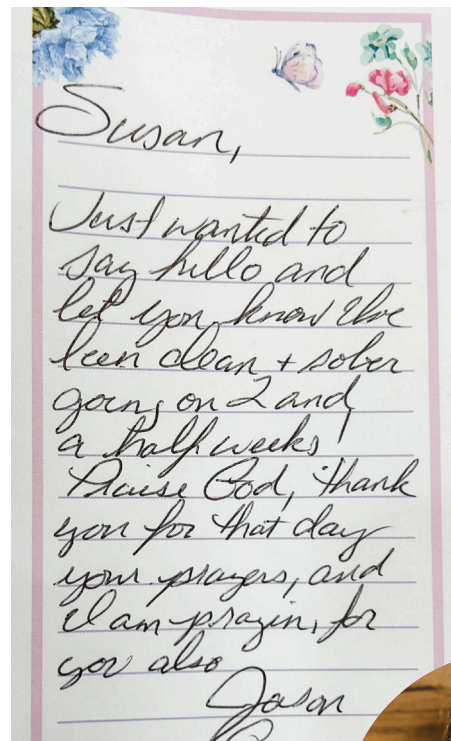 Susan,
Just wanted to
say hello and
let you know I've
been clean + sober
going on 2 and
a half weeks!
Praise God, thank
you for that day
your prayers, and
I am prayin, for
you also
Jason